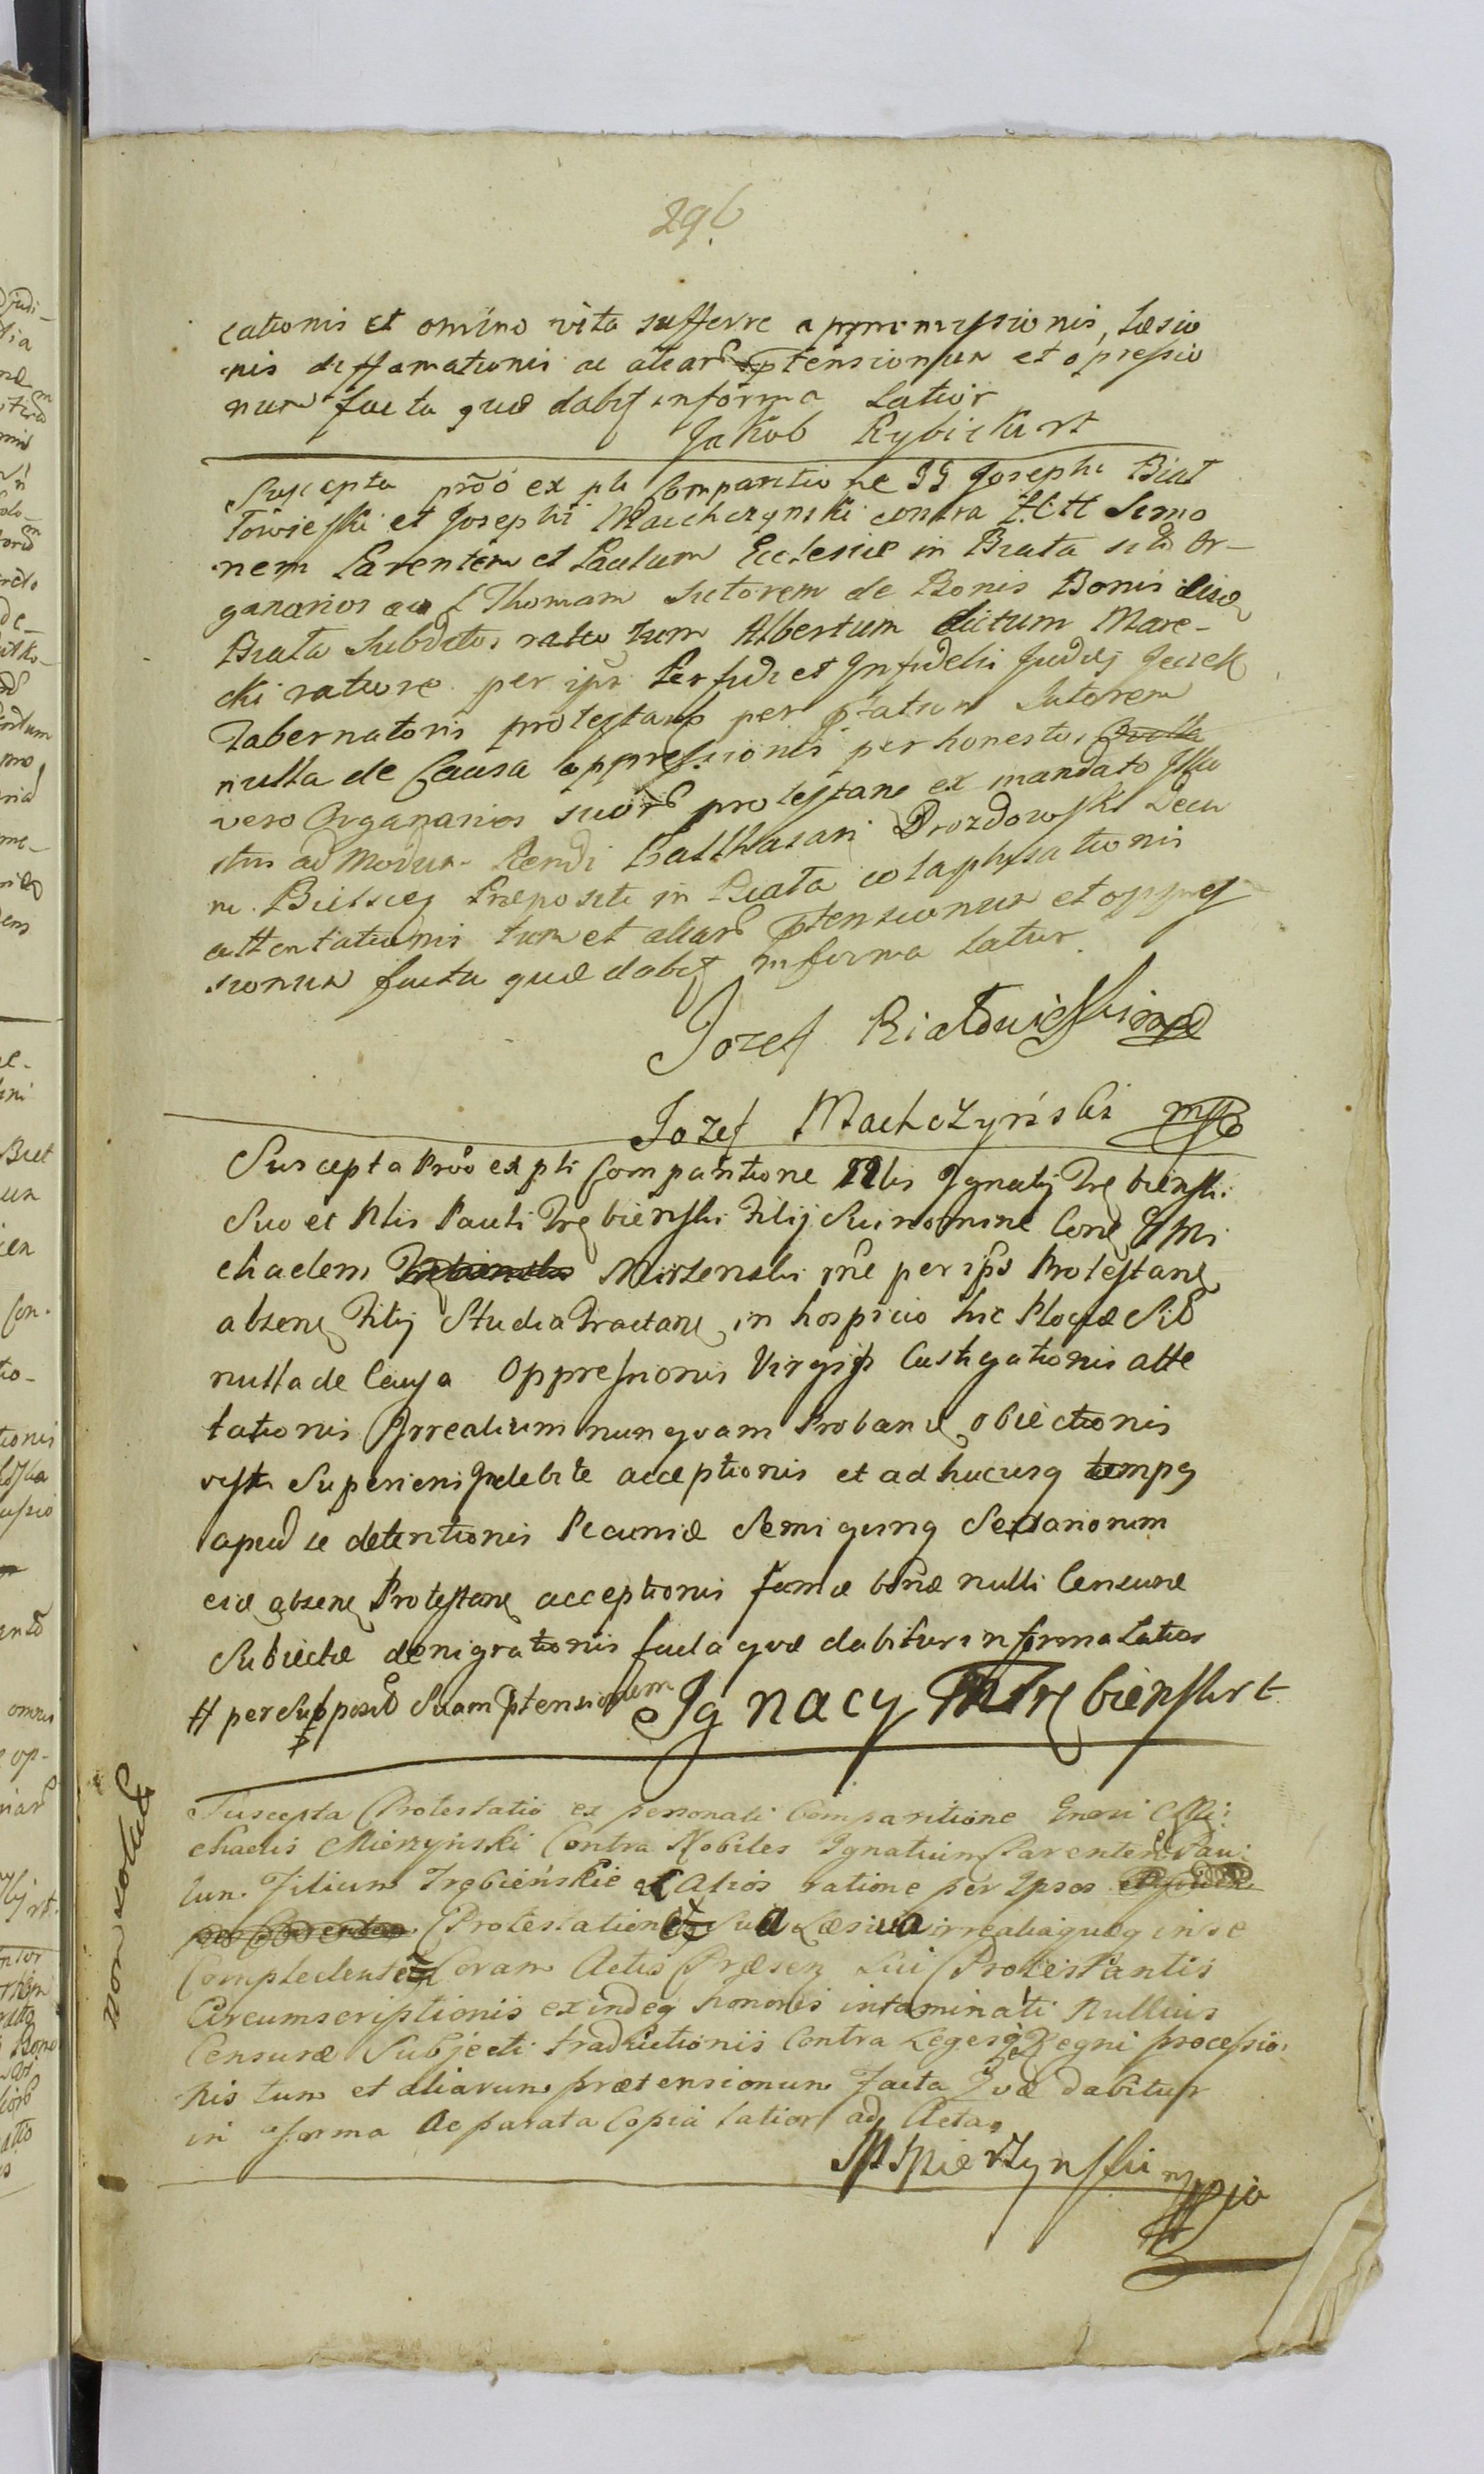 296
cationis et omnino vita sufferre appromissionis, Læsio
nis diffamationis ac aliarũ ptensionum et opressio
num facta quæ dabit in forma Latior
Jakob Rybicki rt
Suscepta prõo ex pli Comparitione GG Josephi Biał
łowieski et Josephi Maichczynski contra HHH Simo
nem Parentem et Paulum Ecclesiæ in Biała Or-
ganarios ac Thomam Sutorem de Bonis Bonis
Biała Subditos tum Albertum dictum Mare-
cki ratione per ips Perfidi et Infidelis Judæi Jacek
Tabernatoris protestanẽ per ptatum Sutorem
nulla de Causa oppressionis per honestos
vero Organarios protestane ex mandato Illu
stris ad Modum Rendi Balthasari Drozdowski Deca
ni Bielscen Præpositi in Biała colaphisationis
attentationis tum et aliarũ ptensionum et oppres
sionum facta quæ dabit in forma latior.
Jozef Białowieski mpd
Jozef Machczyński mp
Suscepta Prõo ex pli Comparitione Nlis Ignatij Trębienski
Suo et Nlis Pauli Trębienski Filij Sui nomine Con G Mi
chaelem Mirzenski rñe per ips Protestanẽ
absenẽ Filij Studia Tractanẽ in hospicio hic Plociæ
nulla de Causa Oppressionis Virgis Castigationis atte
tationis Irrealium nunquam Probanẽ obiectionis
Superieris Indebite acceptionis et ad hucusq tempq
apud se detentionis Pecuniæ Semi quinq Sextariorum
absenẽ Protestanẽ acceptionis famæ bonæ nulli Censuræ
Subiectæ denigrationis facta quæ dabitur in forma Latior
H per Suam ptensionem Ignacy Trębienski rt
non solut
Suscepta Protestatio ex personali Comparitione Grosi Mi:
chaelis Mierzynski Contra Nobiles Ignatium Parentem Pau:
lum Filium Trębieńskie et Alios ratione per Ipsos
Protestation Sua Læsiva irrealiaquæq in se
Complectente Coram Actis Præsen Sui Protestantis
Circumscriptionis exindeq honoris intaminati Nullius
Censuræ Subjecti traductionis Contra Leges Regni processio:
nis tum et aliarum prætensionum facta Quæ dabitur
in forma Separata Copia latior ad Acta
M Mierzynski mppia